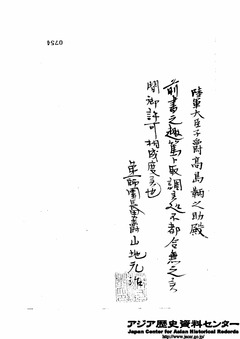 0754
陸軍大臣子爵高島鞆之助殿
前書之趣篤ト取調候処不都合無之ニ
聞御許可相成度候也
第一師団長男爵山地元治
アジア歴史資料センター
Japan Center for Asian Historical Records
http://www.jacar.go.jp/